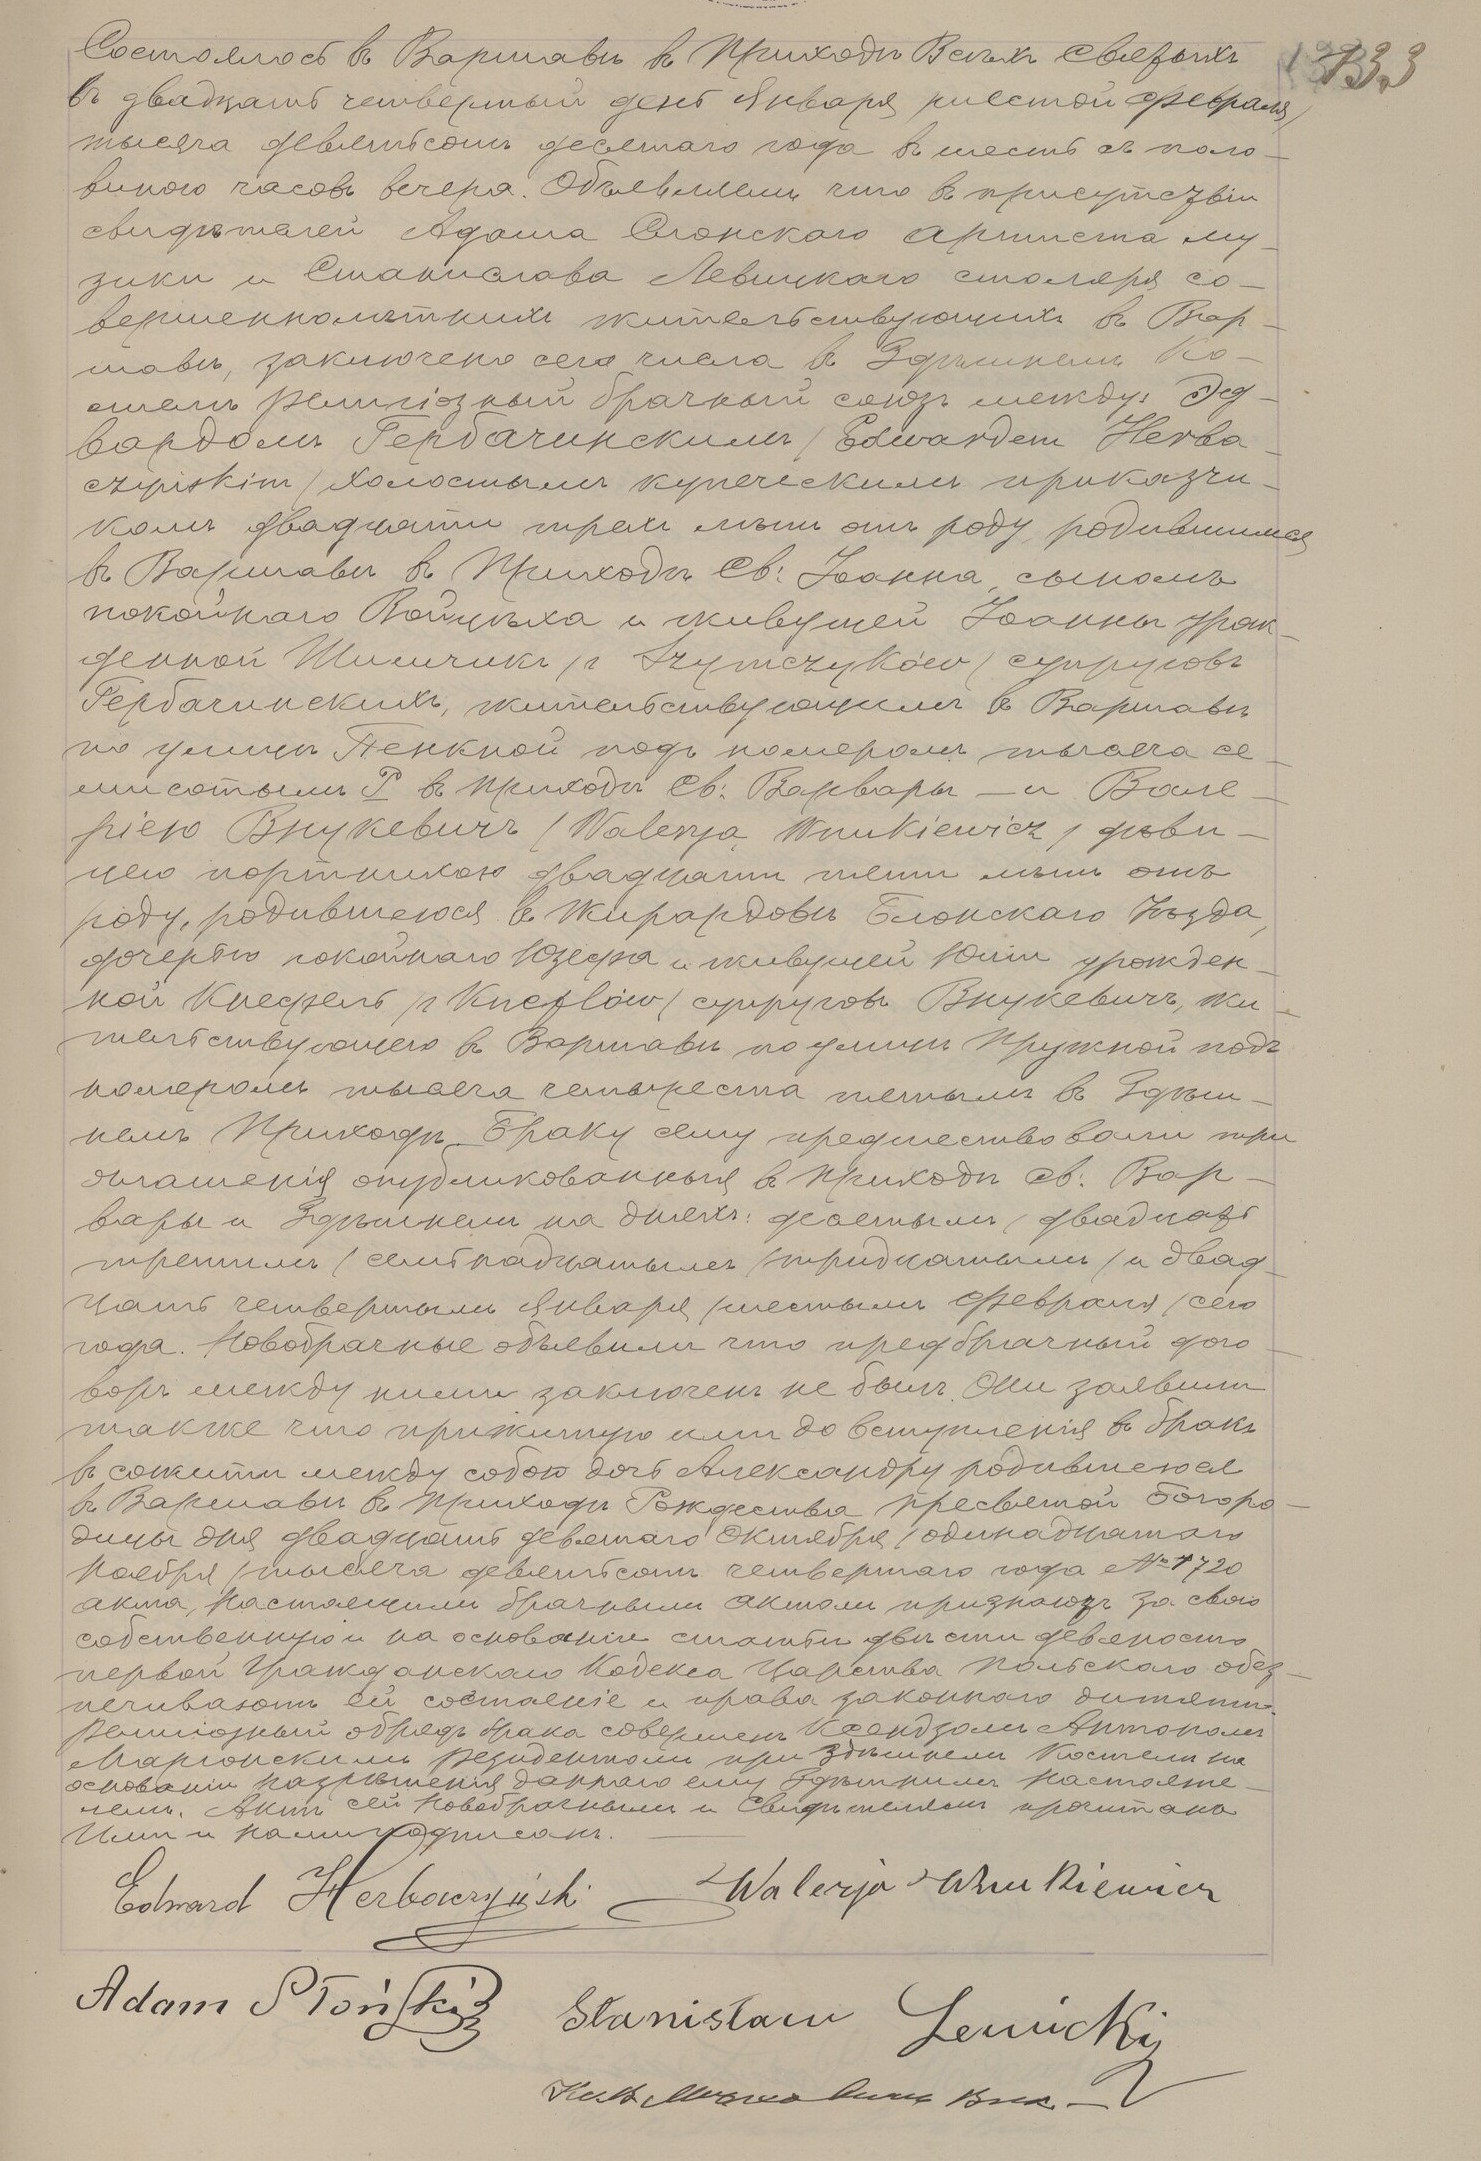 133
Состоялось въ Варшавѣ въ Приходѣ Всѣхъ Святыхъ
въ двадцать четвертый день Января /шестой Февраля/
тысяча девятьсотъ десятаго года въ шесть съ поло-
виною часовъ вечера. Объявляемъ что въ присутствіи
свидѣтелей Адама Слонскаго артиста му-
зики и Станислава Левицкаго столяра со-
вершеннолѣтнихъ жительствующихъ въ Вар-
шавѣ, заключено сего числа въ Здѣшнемъ Ко-
стелѣ религіозный брачный союзъ между: Эд-
вардомъ Гербачинскимъ /Edwardem Herba-
czyńskim/ холостымъ купеческимъ приказчи-
комъ двадцати трехъ лѣтъ отъ роду, родившимся
въ Варшавѣ въ Приходѣ Св: Іоанна, сыномъ
покойнаго Войцѣха и живущей Іоанны урож-
денной Шимчикъ /z Szymczyków/ супруговъ
Гербачинскихъ, жительствующимъ въ Варшавѣ
по улицѣ Пенкной подъ номеромъ тысяча се-
мисотымъ Р въ приходѣ Св: Варвары — и Вале-
ріею Внукевичъ /Walerją Wnukiewicz/ дѣви-
цею портнихою двадцати пяти лѣтъ отъ
роду, родившеюся въ Жирардовѣ Блонскаго Уѣзда,
дочерью покойнаго Юзефа и живущей Юліи урожден-
ной Кнефель /z Kneflów/ супруговъ Внукевичъ, жи-
тельствующею въ Варшавѣ по улицѣ Пружной подъ
номеромъ тысяча четыреста пятымъ въ Здѣш-
немъ Приходѣ. Браку сему предшествовали три
оглашенія опубликованныя въ приходѣ Св: Вар-
вары и Здѣшнемъ на дняхъ: десятымъ /двадцать
третимъ/ семьнадцатымъ /тридцатымъ/ и двад-
цать четвертымъ Января /шестымъ Февраля/ сего
года. Новобрачные объявили что предбрачный дого-
воръ между ними заключенъ не былъ. Они заявили
также что прижитую ими до вступленія въ бракъ
въ сожитіи между собою дочь Александру родившеюся
въ Варшавѣ въ приходѣ Рождества Пресвятой Богоро-
дицы дня двадцать девятаго Октября /одинадцатаго
Ноября/ тысяча девятьсотъ четвертаго года № 1720
акта, настоящимъ брачнымъ актомъ признаютъ за свою
собственную и на основаніи статьи двѣсти девяносто
первой Гражданскаго Кодекса Царства Польскаго обез-
печиваютъ ей состояніе и права законнаго дитяти.
Религіозный обрядъ брака совершенъ Ксендзомъ Антономъ
Маріонскимъ резидентомъ при здѣшнемъ Костелѣ на
основаніи разрѣшенія даннаго ему Здѣшнимъ Настояте-
лемъ. Актъ сей Новобрачнымъ и Свидѣтелямъ прочитанъ
Ими и нами подписанъ.
Edward Herbaczyński Walerja Wnukiewicz
Adam Słoński Stanisław Lewicki